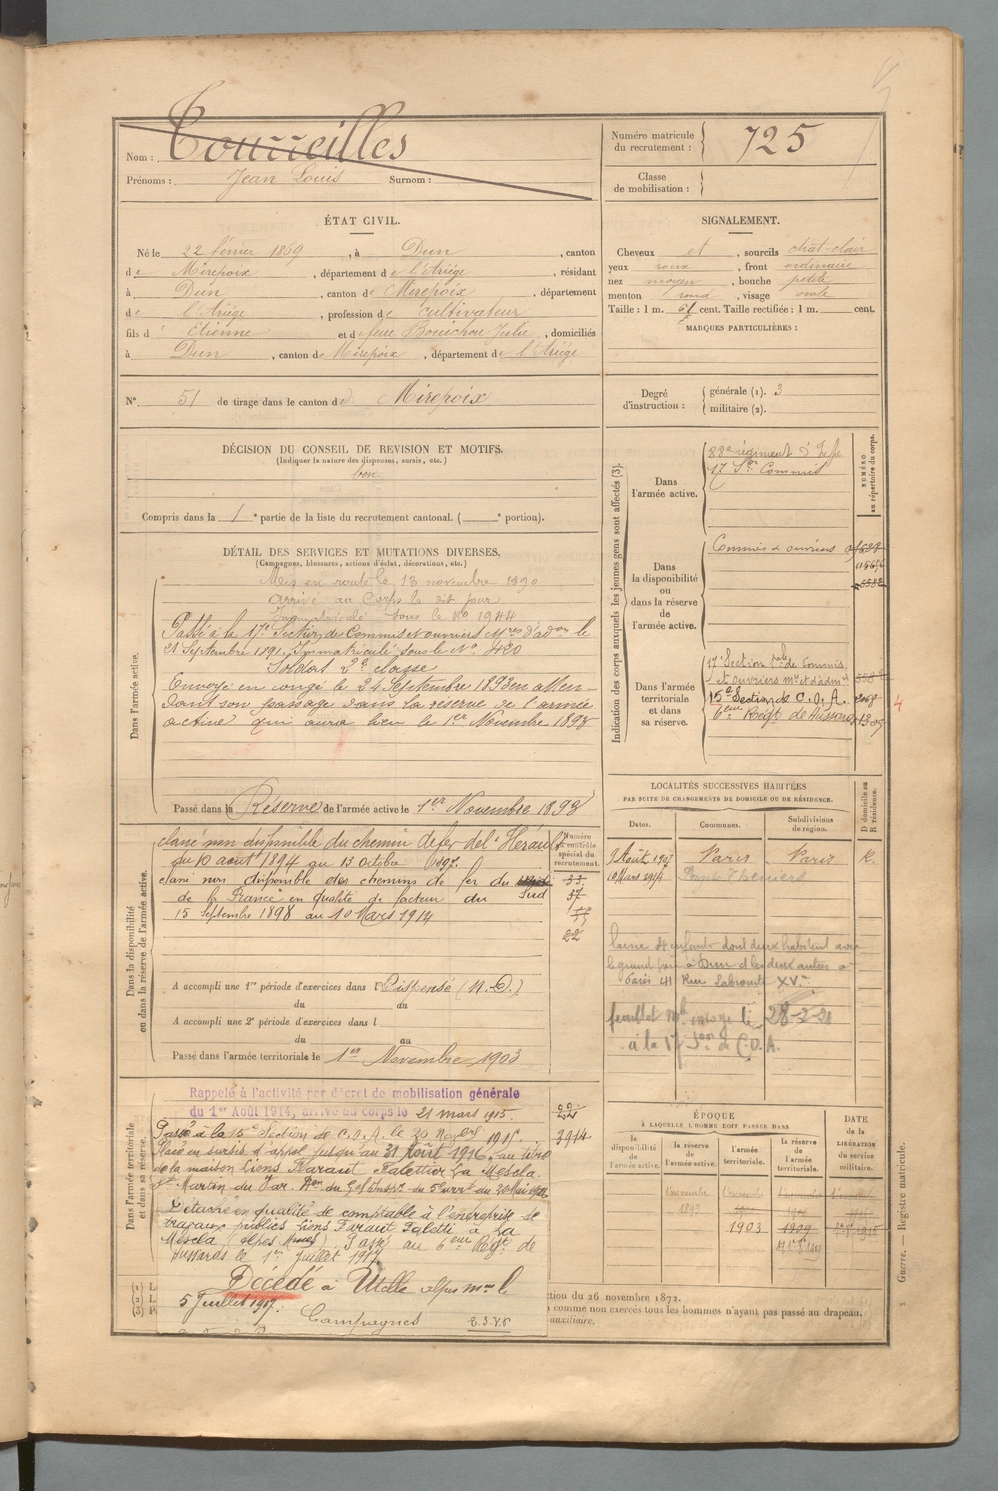 Nom : Tourreilles
Prénoms : Jean Louis Surnom :
Numéro matricule
du recrutement : 725
Classe
de mobilisation :
ÉTAT CIVIL.
Né le 22 février 1869, à Dun, canton
de Mirepoix, département de l'Ariége, résidant
à Dun, canton de Mirepoix, département
de l'Ariége, profession de cultivateur
fils d' Etienne et de feue Bouichou Julie, domiciliés
à Dun, canton de Mirepoix, département de l'Ariége
N° 51 de tirage dans le canton de Mirepoix
SIGNALEMENT.
Cheveux et, sourcils chât-clair
yeux roux, front ordinaire
nez moyen, bouche petite
menton rond, visage ovale
Taille : 1 m. 61 cent. Taille rectifiée : 1 m. cent.
MARQUES PARTICULIÈRES :
Degré
d'instruction :
générale (1). 3
militaire (2).
DÉCISION DU CONSEIL DE REVISION ET MOTIFS.
(Indiquer la nature des dispenses, sursis, etc.)
bon
Compris dans la 1e partie de la liste du recrutement cantonal. ( e portion).
DÉTAIL DES SERVICES ET MUTATIONS DIVERSES.
(Campagnes, blessures, actions d'éclat, décorations, etc.)
Dans l'armée active.
Mis en route le 13 novembre 1890
arrivé au Corps le dit jour
Immatriculé sous le No 1944
Passé à la 17e Section de Commis et ouvriers Mres d'adon le
21 Septembre 1891. Immatriculé sous le No 420
Soldat 2e classe
Envoyé en congé le 24 Septembre 1893 en atten-
dant son passage dans la réserve de l'armée
active qui aura lieu le 1er Novembre 1893
Passé dans la Réserve de l'armée active le 1er Novembre 1893
Dans la disponibilité
ou dans la réserve de l'armée active.
classé non disponible du chemin de fer de l'Hérault
du 10 août 1894 au 13 octobre 1897.
classé non disponible des chemins de fer du Sud
de la France en qualité de facteur du
15 Septembre 1898 au 10 Mars 1914
Numéro
au contrôle
spécial du
recrutement.
33
22
A accompli une 1re période d'exercices dans l Dispensé (N.D.)
du au
A accompli une 2e période d'exercices dans l
du au
Passé dans l'armée territoriale le 1er Novembre 1903
Dans l'armée territoriale
et dans sa réserve.
Rappelé à l'activité par décret de mobilisation générale
du 1er Août 1914, arrivé au corps le 21 mars 1915.
22
Passé à la 15e Section de C.O.A. le 20 Novbre 1915.
3914
Placé en sursis d'appel jusqu'au 31 Août 1916, au titre
de la maison Lions Faraut Falettier La Mescla.
St Martin du Var.
Détaché en qualité de comptable à l'entreprise de
travaux publics Lions Faraut Faletti à La
Mescla (Alpes Mmes) Passé au 6eme Regt de
Hussards le 1er juillet 1917
Décédé à Utelle alpes mmes le
5 Juillet 1917.
Campagnes
Indication des corps auxquels les jeunes gens sont affectés (3).
NUMÉRO
au répertoire du corps.
Dans
l'armée active.
88e régiment d'Infie
17 Son Commis
Dans
la disponibilité
ou
dans la réserve
de
l'armée active.
Commis & ouvriers
Dans l'armée
territoriale
et dans
sa réserve.
17 Section tale de Commis
et ouvriers mre et d'admon
15e Section de C.O.A. 2068
6eme Regt de Hussards
4
LOCALITÉS SUCCESSIVES HABITÉES
PAR SUITE DE CHANGEMENTS DE DOMICILE OU DE RÉSIDENCE.
Dates. Communes. Subdivisions
de région. D domicile ou
R résidence.
9 Août 1907 Paris Paris R.
10 Mars 1914 Puget-Théniers
laisse 4 enfants dont deux habitent avec
le grand père à Dun et les deux autres à
Paris 41 Rue Labrouste XVe
feuillet mle envoyé le 28-2-21
à la 17 Son de C.O.A.
ÉPOQUE
À LAQUELLE L'HOMME DOIT PASSER DANS
la
disponibilité
de
l'armée active.
la réserve
de
l'armée active.
l'armée
territoriale.
la réserve
de
l'armée
territoriale.
DATE
de la
LIBÉRATION
du service
militaire.
1 novembre 1 novembre 1 novembre
1893
1903 1909
Guerre. — Registre matricule.
ction du 26 novembre 1872.
comme non exercés tous les hommes n'ayant pas passé au drapeau,
auxiliaire.